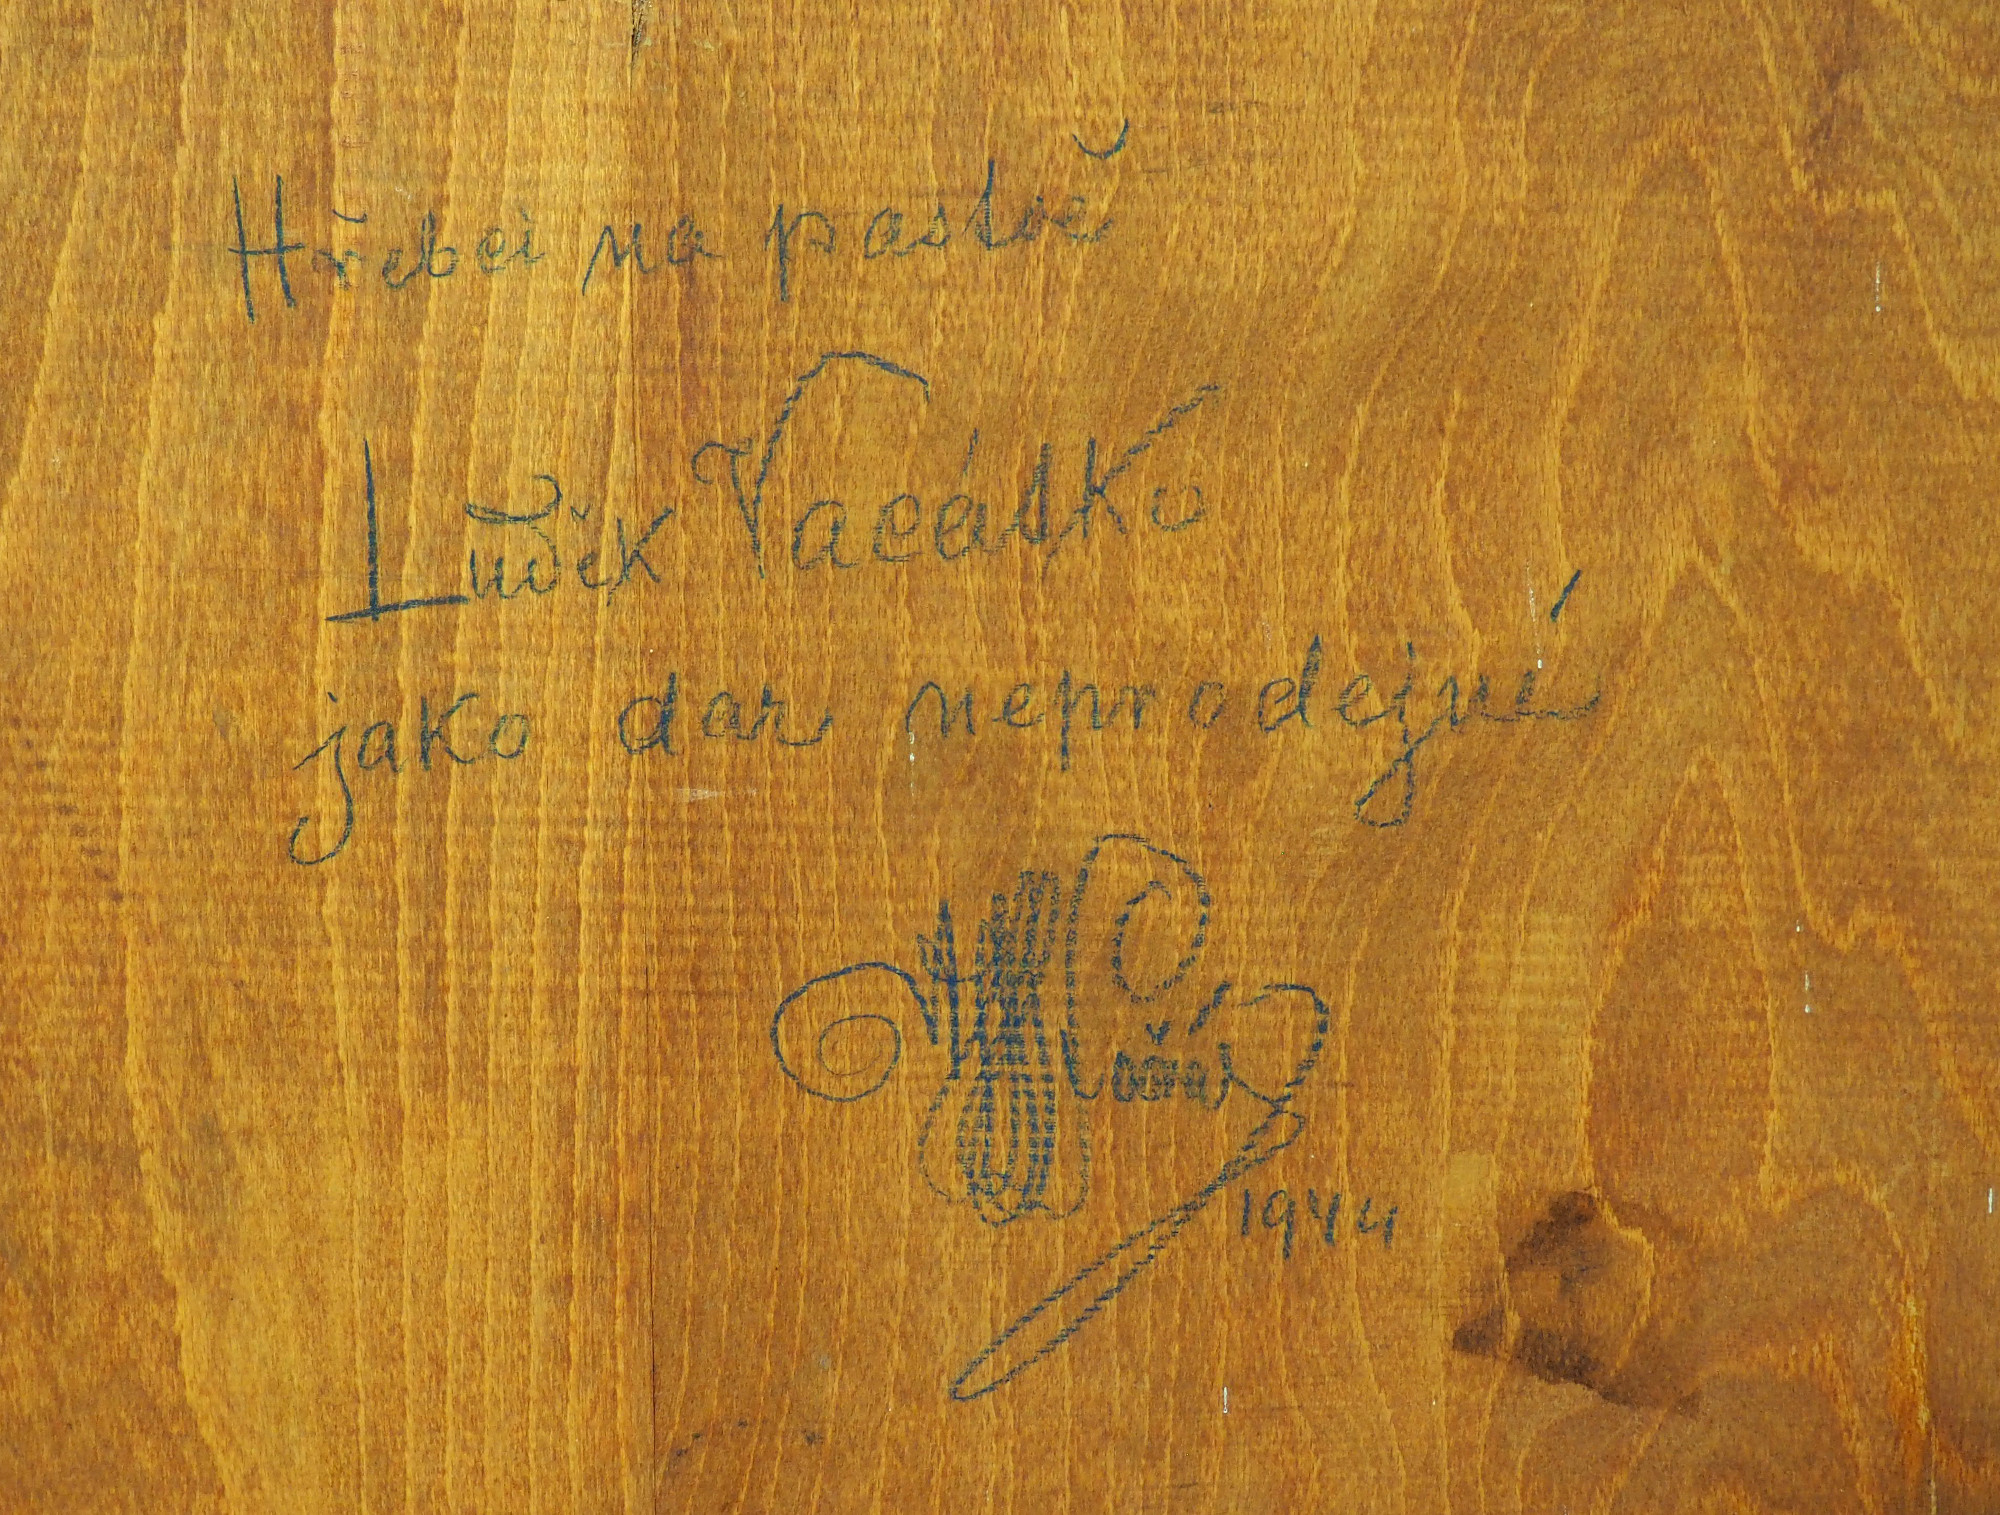 Hřebci na pastvě
Luděk Vacátko
jako dar neprodejné
1944